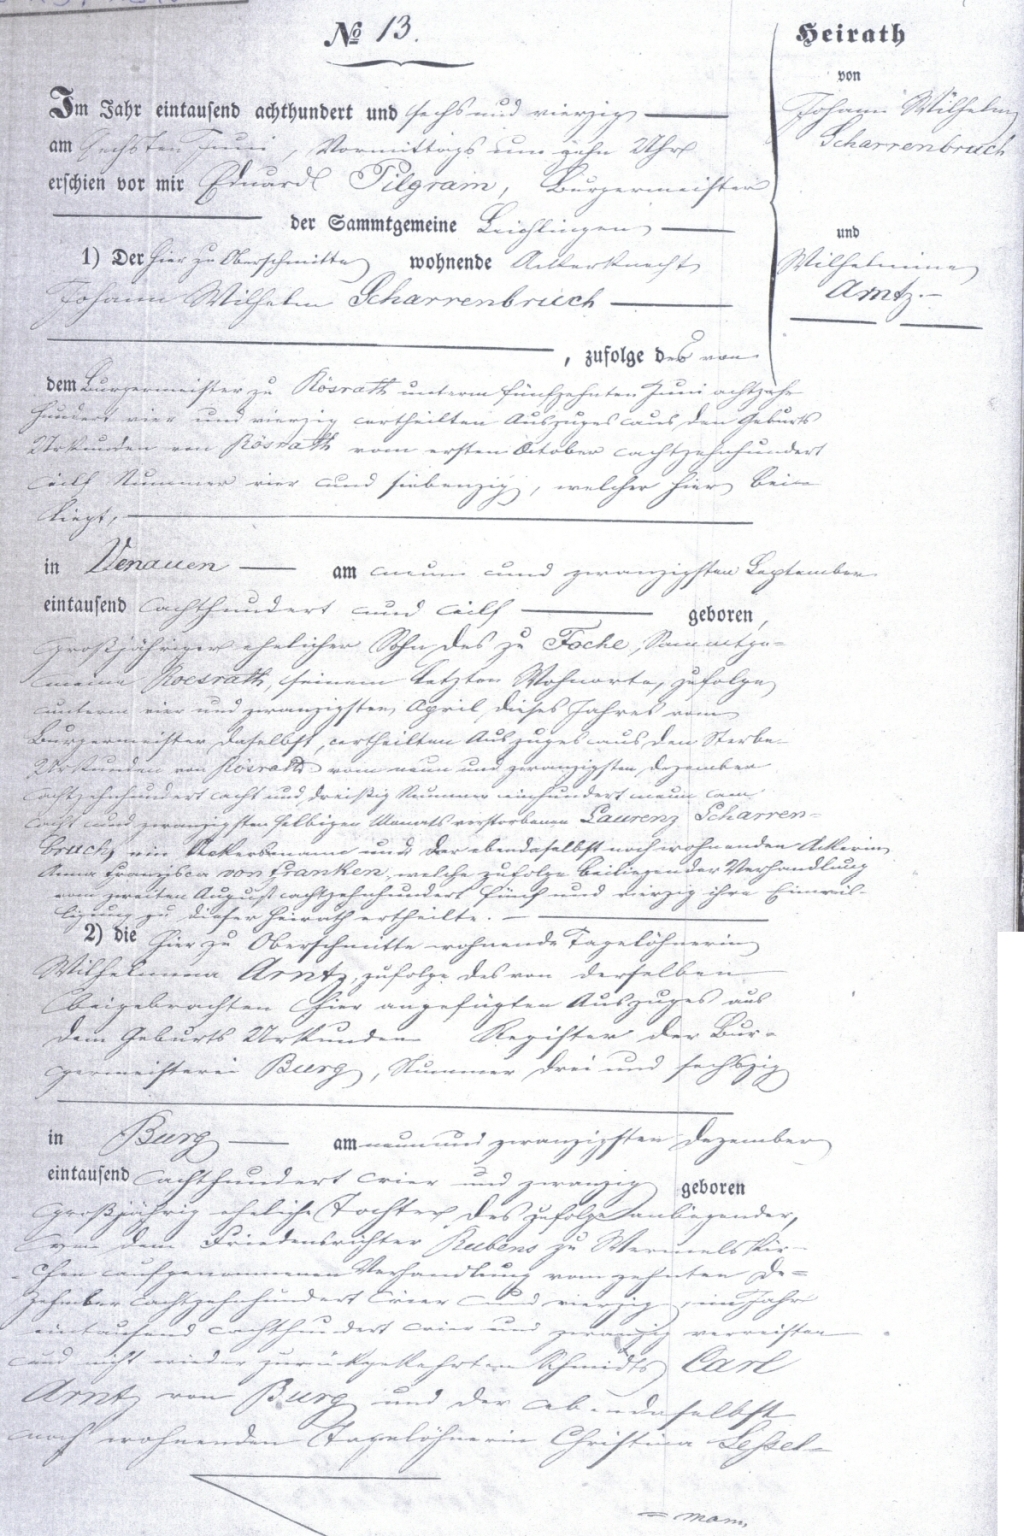 № 13.
Heirath
von
Johann Wilhelm
Scharrenbruch
und
Wilhelmina
Arntz.
Im Jahr eintausend achthundert und sechs und vierzig
am sechsten Juni, Vormittags um zehn Uhr
erschien vor mir Eduard Pilgram, Burgermeister
der Sammtgemeine Leichlingen
1) Der hier zu Oberschmitte wohnende Ackerknecht
Johann Wilhelm Scharrenbruch
, zufolge des von
dem Burgermeister zu Rösrath unterm fünfzehnten Juni achtzehn
hundert vier und vierzig ertheilten Auszuges aus den Geburts
Urkunden von Rösrath vom ersten October achtzehnhundert
eilf Nummer vier und siebenzig, welcher hier bei
liegt,
in Venauen am neun und zwanzigsten September
eintausend achthundert und eilf geboren,
großjähriger ehelicher Sohn des zu Foche, Sammtge-
meine Roesrath, seinem letzten Wohnorte, zufolge
unterm vier und zwanzigsten April dieses Jahres vom
Burgermeister daselbst ertheilten Auszuges aus den Sterbe-
Urkunden von Rösrath vom neun und zwanzigsten Dezember
achtzehnhundert acht und dreißig Nummer einhundert neun am
acht und zwanzigsten selbigen Monats verstorbenen Laurenz Scharren-
bruch, ein Ackersmann und der ebendaselbst noch wohnenden Ackerin
Anna Franzisca von Franken, welche zufolge beiliegender Verhandlung
vom zweiten August achtzehnhundert fünf und vierzig ihre Einwil-
ligung zu dieser Heirath ertheilte.
2) die hier zu Oberschmitte wohnende Tagelöhnerin
Wilhelmina Arntz, zufolge des von derselben
beigebrachten hier angefügten Auszuges aus
dem Geburts Urkunden Register der Bur-
germeisterei Burg, Nummer drei und sechszig
in Burg am neun und zwanzigsten Dezember
eintausend achthundert vier und zwanzig geboren
großjährig eheliche Tochter des zufolge anliegender,
von dem Friedensrichter Rubens zu Wermelskir-
chen aufgenommenen Verhandlung vom zehnten De-
zehmber achtzehnhundert vier und vierzig, im Jahr
eintausend achthundert vier und zwanzig verreisten
und nicht wieder zurückgekehrten Schmidts Carl
Arntz von Burg und der ebendaselbst
noch wohnenden Tagelöhnerin Christina Lessel-
= mann,